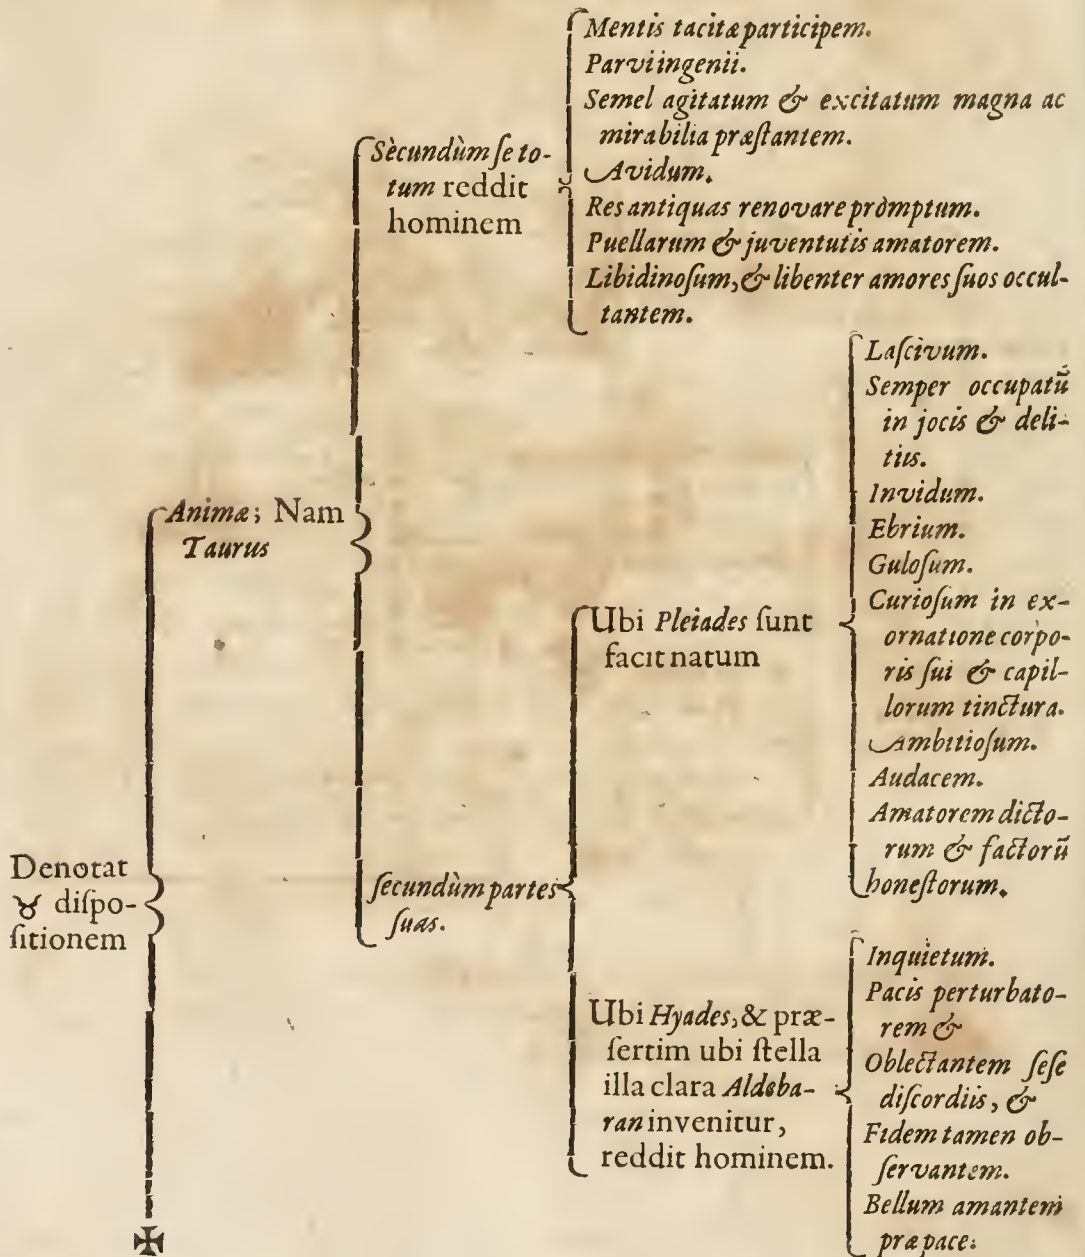 Denotat
♉ diſpo-
ſitionem
Animæ; Nam
Taurus
Sècundùm ſe to-
tum reddit
hominem
Mentis tacitæ participem.
Parvi ingenii.
Semel agitatum & excitatum magna ac
mirabilia præſtantem.
Avidum.
Res antiquas renovare pròmptum.
Puellarum & juventutis amatorem.
Libidinoſum, & libenter amores ſuos occul-
tantem.
ſecundùm partes
ſuas.
Ubi Pleiades ſunt
facit natum
Laſcivum.
Semper occupatū
in jocis & deli-
tiis.
Invidum.
Ebrium.
Guloſum.
Curioſum in ex-
ornatione corpo-
ris ſui & capil-
lorum tinctura.
Ambitioſum.
Audacem.
Amatorem dicto-
rum & factorū
honeſtorum.
Ubi Hyades, & præ-
ſertim ubi ſtella
illa clara Aldeba-
ran invenitur,
reddit hominem.
Inquietum.
Pacis perturbato-
rem &
Oblectantem ſeſe
diſcordiis, &
Fidem tamen ob-
ſervantem.
Bellum amantem
præ pace.
✠